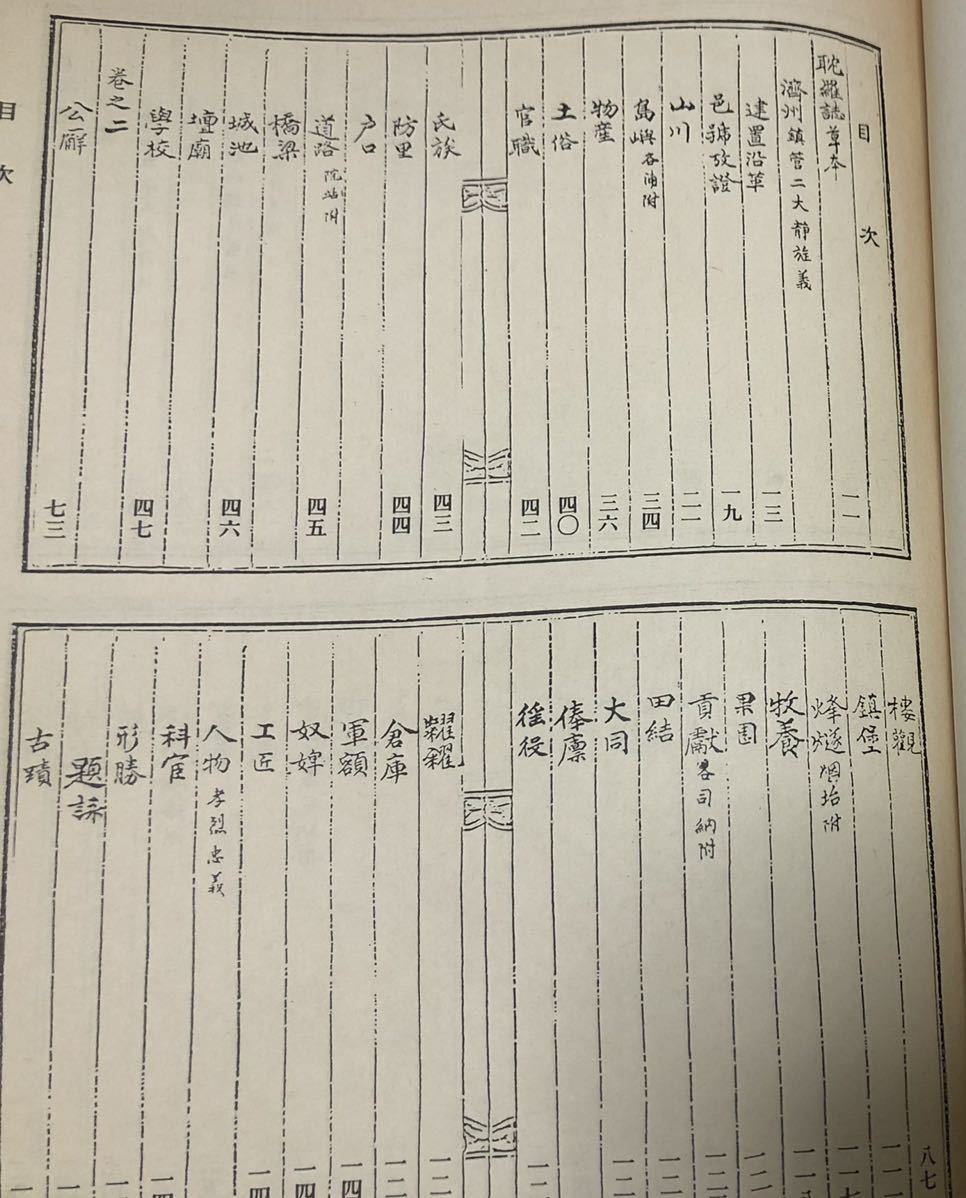 目次
耽羅誌草本 一一
濟州鎮管二大靜旌義
建置沿革 一三
邑號攷證 一九
山川 二一
島嶼 各浦附 三四
物産 三六
土俗 四〇
官職 四二
氏族 四三
防里 四四
戶口
道路 院站附 四五
橋梁
城池 四六
壇廟
學校 四七
卷之二
公廨 七三
目次
樓觀 八七
鎮堡
烽燧 烟坮附
牧養
果園
貢獻 各司納附
田結
大同
俸廩
徭役
糶糴
倉庫
軍額
奴婢
工匠
人物 孝烈忠義
科宦
形勝
題詠
古蹟